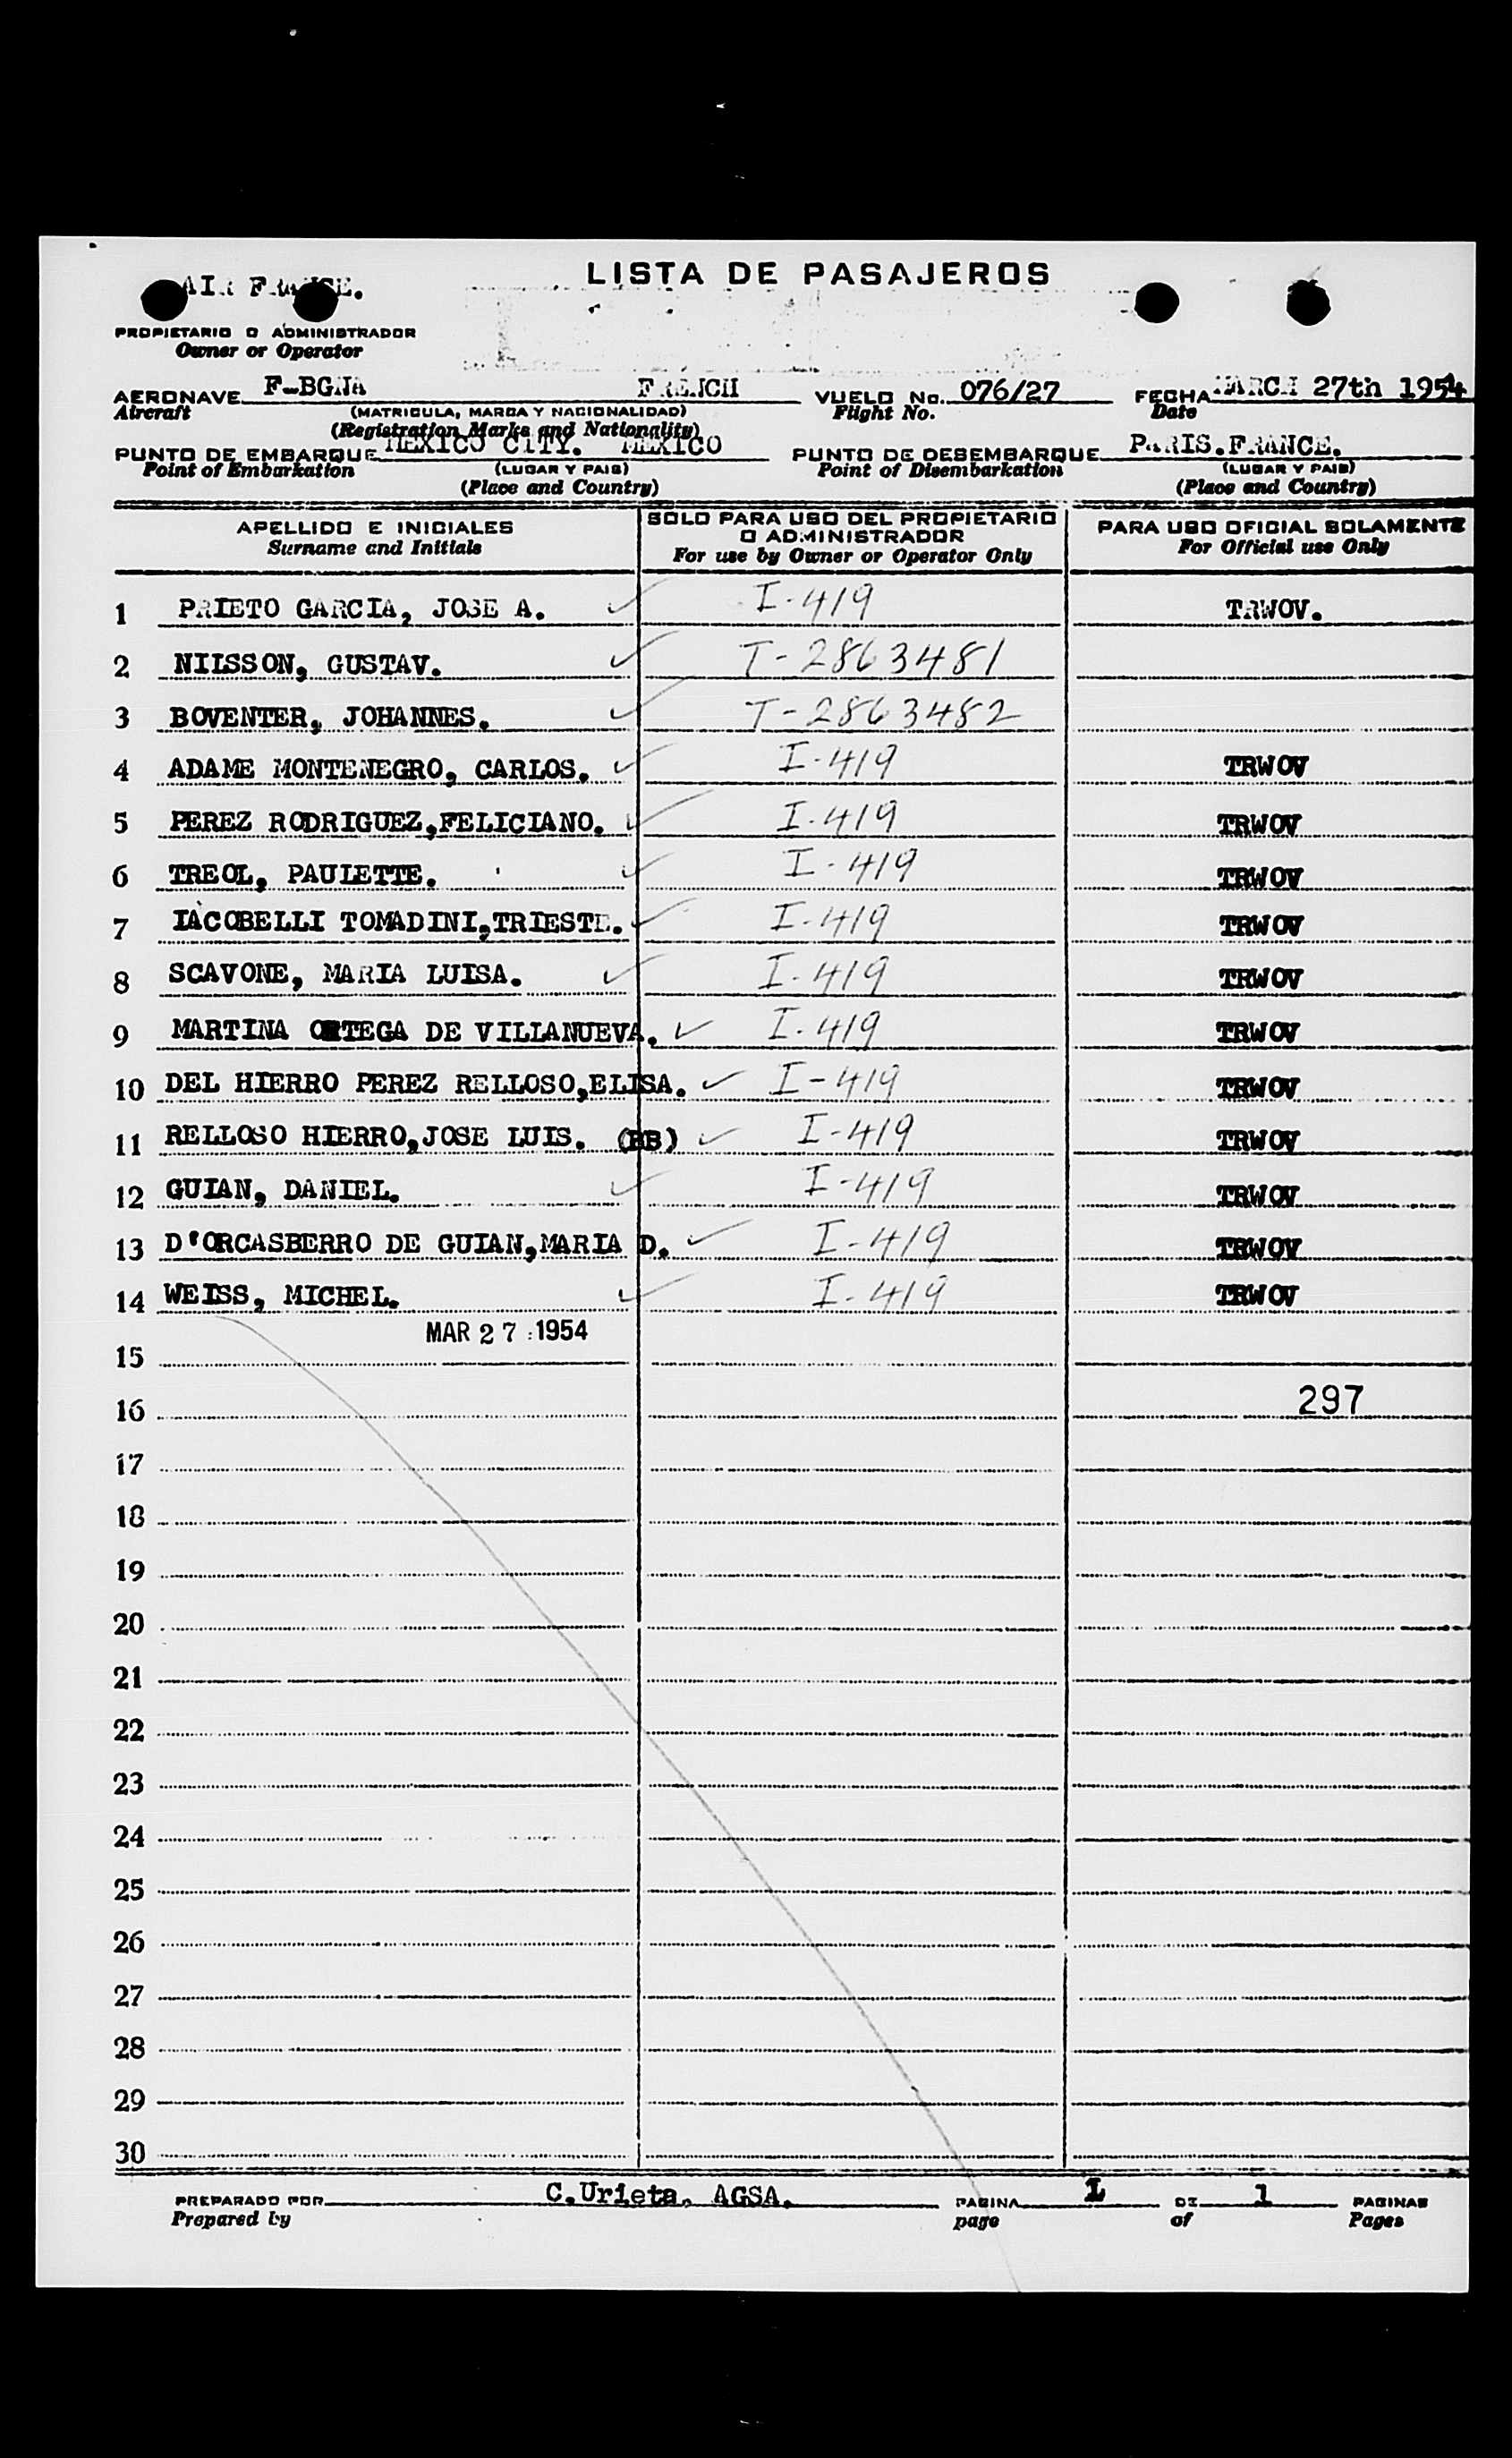 LISTA DE PASAJEROS
AIR FRANCE.
PROPIETARIO O ADMINISTRADOR
Owner or Operator
AERONAVE F-BGNA FRENCH VUELO No. 076/27 FECHA MARCH 27th 1954
Aircraft (MATRICULA, MARCA Y NACIONALIDAD) Flight No. Date
(Registration Marks and Nationality)
PUNTO DE EMBARQUE MEXICO CITY. MEXICO PUNTO DE DESEMBARQUE PARIS.FRANCE.
Point of Embarkation (LUGAR Y PAIS) Point of Disembarkation (LUGAR Y PAIS)
(Place and Country) (Place and Country)
APELLIDO E INICIALES SOLO PARA USO DEL PROPIETARIO O ADMINISTRADOR PARA USO OFICIAL SOLAMENTE
Surname and Initials For use by Owner or Operator Only For Official use Only
1 PRIETO GARCIA, JOSE A. I-419 TRWOV.
2 NILSSON, GUSTAV. T-2863481
3 BOVENTER, JOHANNES. T-2863482
4 ADAME MONTENEGRO, CARLOS. I-419 TRWOV
5 PEREZ RODRIGUEZ,FELICIANO. I-419 TRWOV
6 TREOL, PAULETTE. I-419 TRWOV
7 IACOBELLI TOMADINI,TRIESTE. I-419 TRWOV
8 SCAVONE, MARIA LUISA. I-419 TRWOV
9 MARTINA ORTEGA DE VILLANUEVA. I-419 TRWOV
10 DEL HIERRO PEREZ RELLOSO,ELISA. I-419 TRWOV
11 RELLOSO HIERRO,JOSE LUIS. (BB) I-419 TRWOV
12 GUIAN, DANIEL. I-419 TRWOV
13 D'ORCASBERRO DE GUIAN,MARIA D. I-419 TRWOV
14 WEISS, MICHEL. I-419 TRWOV
MAR 27 1954
15
16 297
17
18
19
20
21
22
23
24
25
26
27
28
29
30
PREPARADO POR C.Urieta. AGSA. PAGINA 1 DE 1 PAGINAS
Prepared by page of Pages